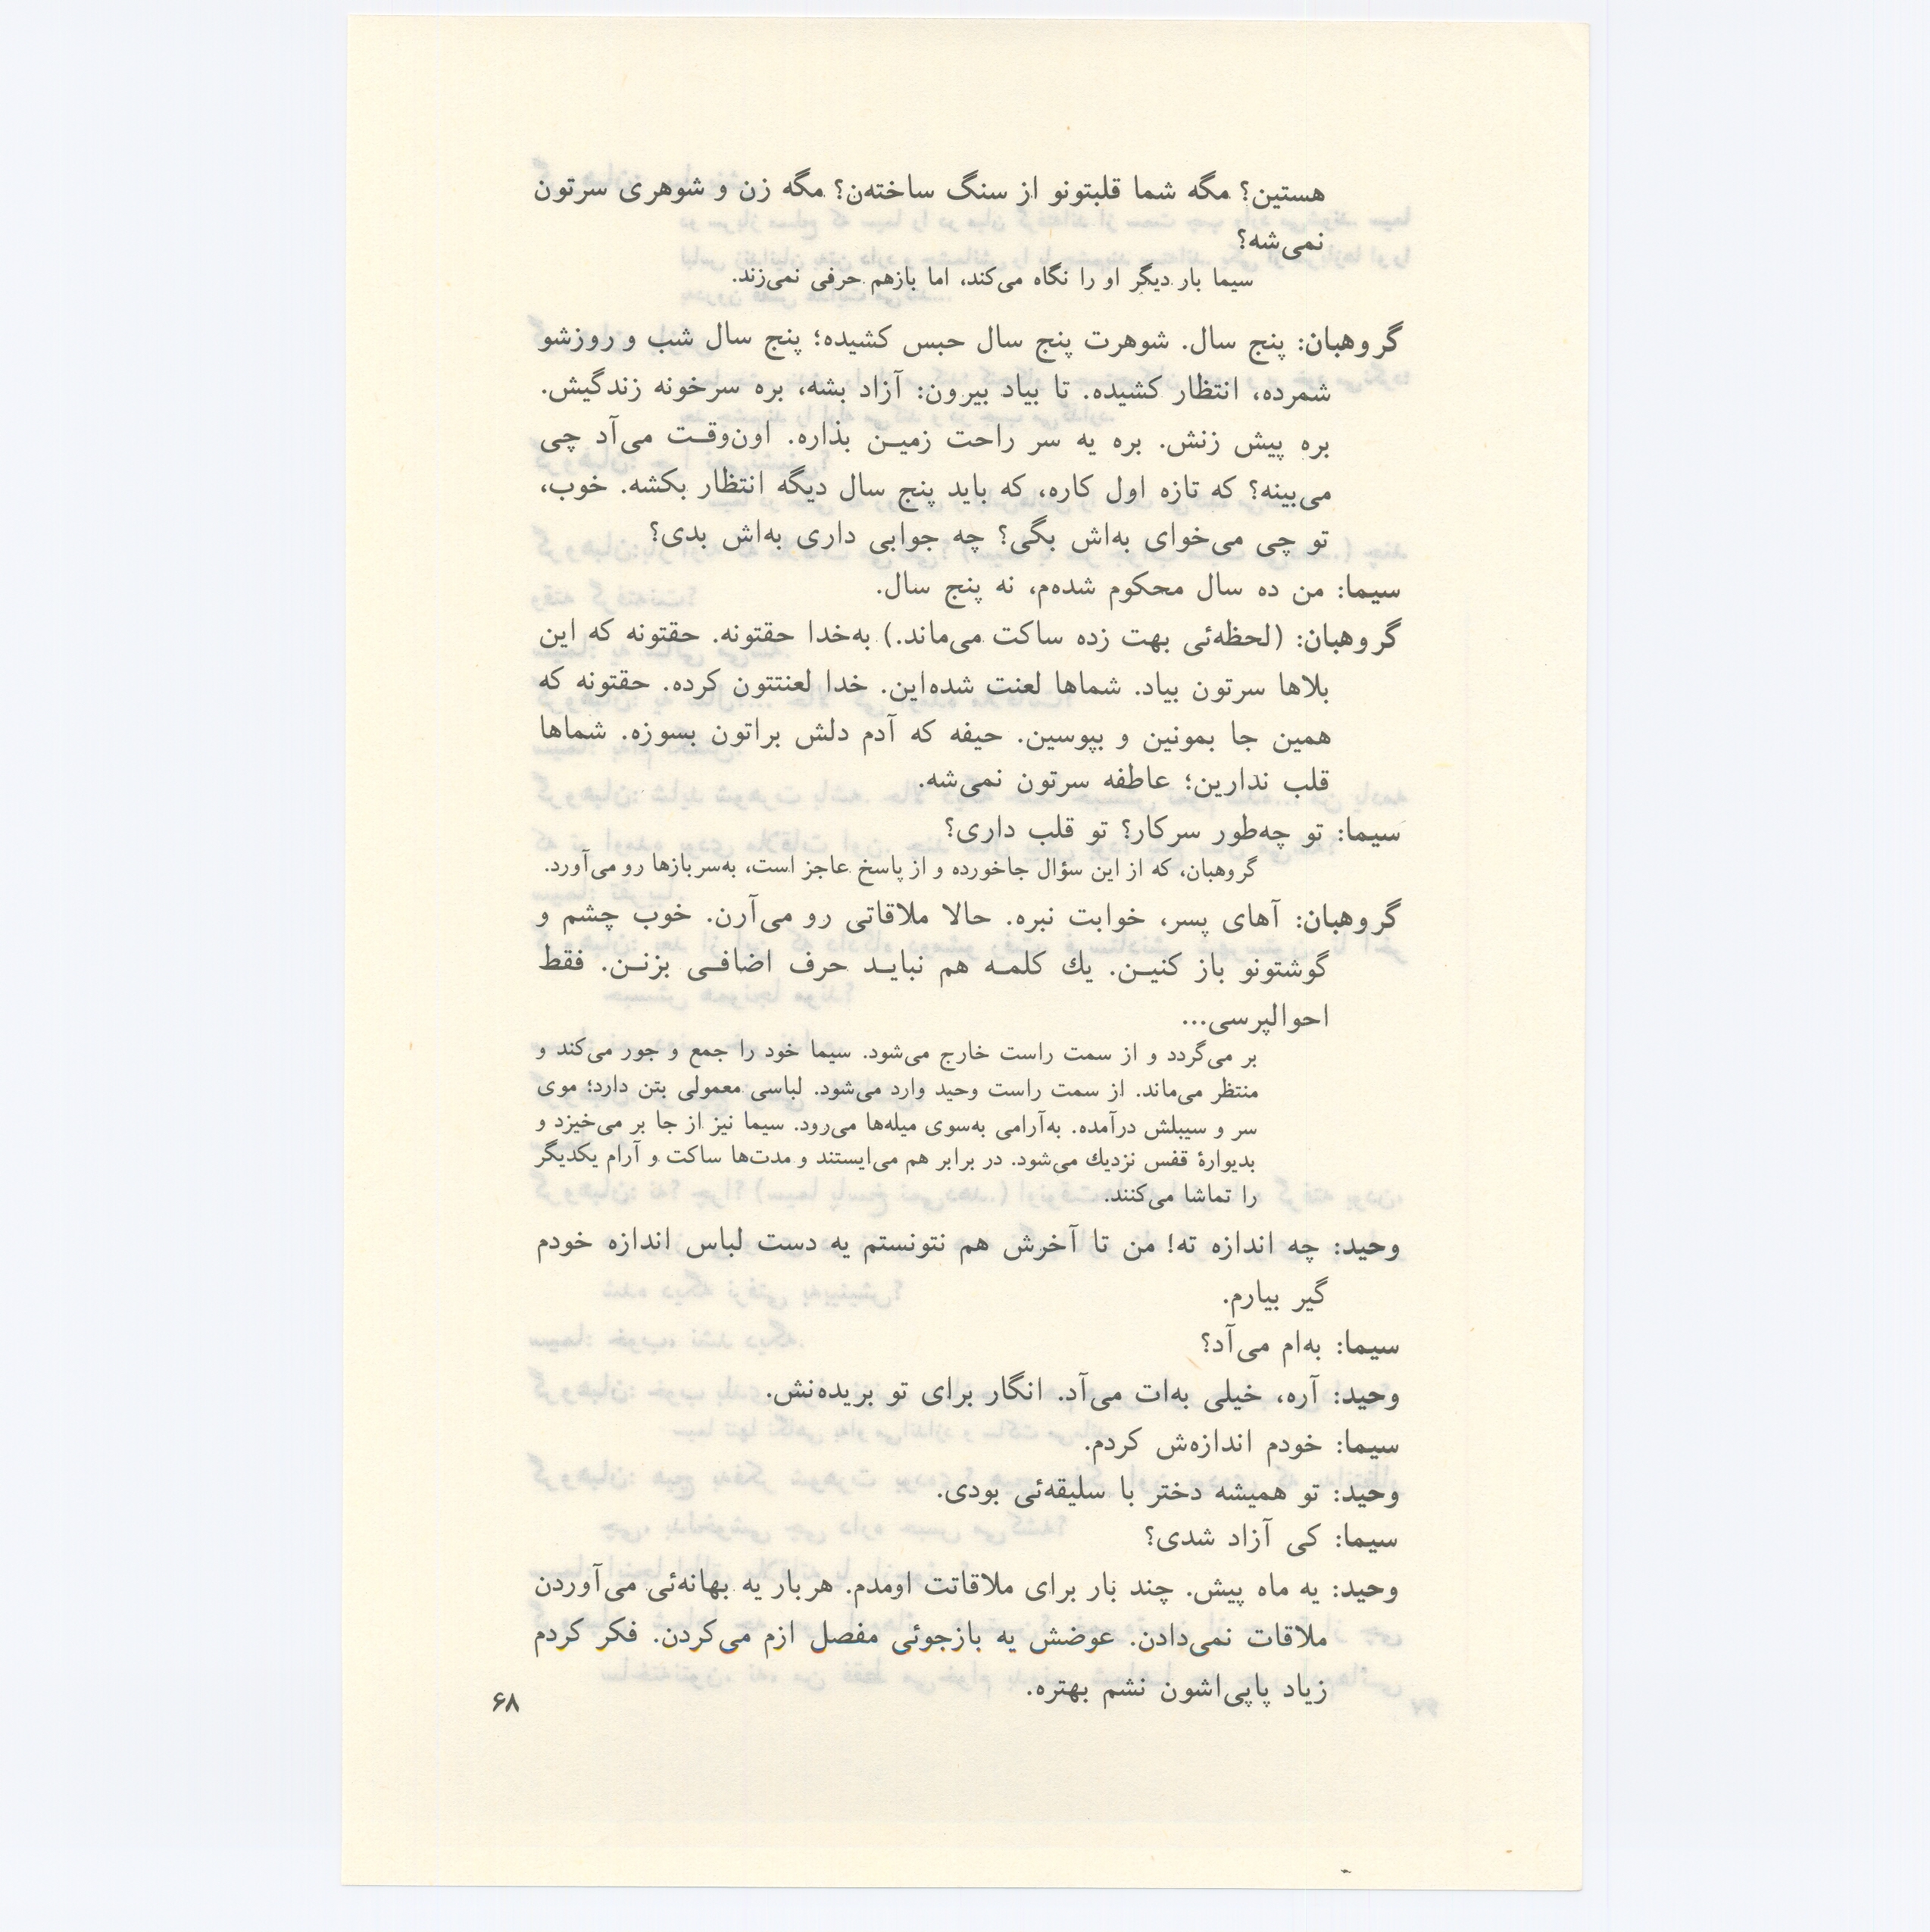 هستین؟ مگه شما قلبتونو از سنگ ساخته‌ن؟ مگه زن و شوهری سرتون
نمی‌شه؟
سیما بار دیگر او را نگاه می‌کند، اما بازهم حرفی نمی‌زند.
گروهبان: پنج سال. شوهرت پنج سال حبس کشیده؛ پنج سال شب و روزشو
شمرده، انتظار کشیده. تا بیاد بیرون: آزاد بشه، بره سرخونه زندگیش.
بره پیش زنش. بره یه سر راحت زمیـن بذاره. اون‌وقـت می‌آد چی
می‌بینه؟ که تازه اول کاره، که باید پنج سال دیگه انتظار بکشه. خوب،
تو چی می‌خوای به‌اش بگی؟ چه جوابی داری به‌اش بدی؟
سیما: من ده سال محکوم شده‌م، نه پنج سال.
گروهبان: (لحظه‌ئی بهت زده ساکت می‌ماند.) به‌خدا حقتونه. حقتونه که این
بلاها سرتون بیاد. شماها لعنت شده‌این. خدا لعنتتون کرده. حقتونه که
همین جا بمونین و بپوسین. حیفه که آدم دلش براتون بسوزه. شماها
قلب ندارین؛ عاطفه سرتون نمی‌شه.
سیما: تو چه‌طور سرکار؟ تو قلب داری؟
گروهبان، که از این سؤال جاخورده و از پاسخ عاجز است، به‌سربازها رو می‌آورد.
گروهبان: آهای پسر، خوابت نبره. حالا ملاقاتی رو می‌آرن. خوب چشم و
گوشتونو باز کنیـن. یك کلمـه هم نبایـد حرف اضافـی بزنـن. فقط
احوالپرسی...
بر می‌گردد و از سمت راست خارج می‌شود. سیما خود را جمع و جور می‌کند و
منتظر می‌ماند. از سمت راست وحید وارد می‌شود. لباسی معمولی بتن دارد؛ موی
سر و سیبلش درآمده. به‌آرامی به‌سوی میله‌ها می‌رود. سیما نیز از جا بر می‌خیزد و
بدیوارهٔ قفس نزدیك می‌شود. در برابر هم می‌ایستند و مدت‌ها ساکت و آرام یکدیگر
را تماشا می‌کنند.
وحید: چه اندازه ته! من تا آخرش هم نتونستم یه دست لباس اندازه خودم
گیر بیارم.
سیما: به‌ام می‌آد؟
وحید: آره، خیلی به‌ات می‌آد. انگار برای تو بریده‌نش.
سیما: خودم اندازه‌ش کردم.
وحید: تو همیشه دختر با سلیقه‌ئی بودی.
سیما: کی آزاد شدی؟
وحید: یه ماه پیش. چند بار برای ملاقاتت اومدم. هربار یه بهانه‌ئی می‌آوردن
ملاقات نمی‌دادن. عوضش یه بازجوئی مفصل ازم می‌کردن. فکر کردم
زیاد پاپی‌اشون نشم بهتره.
۶۸